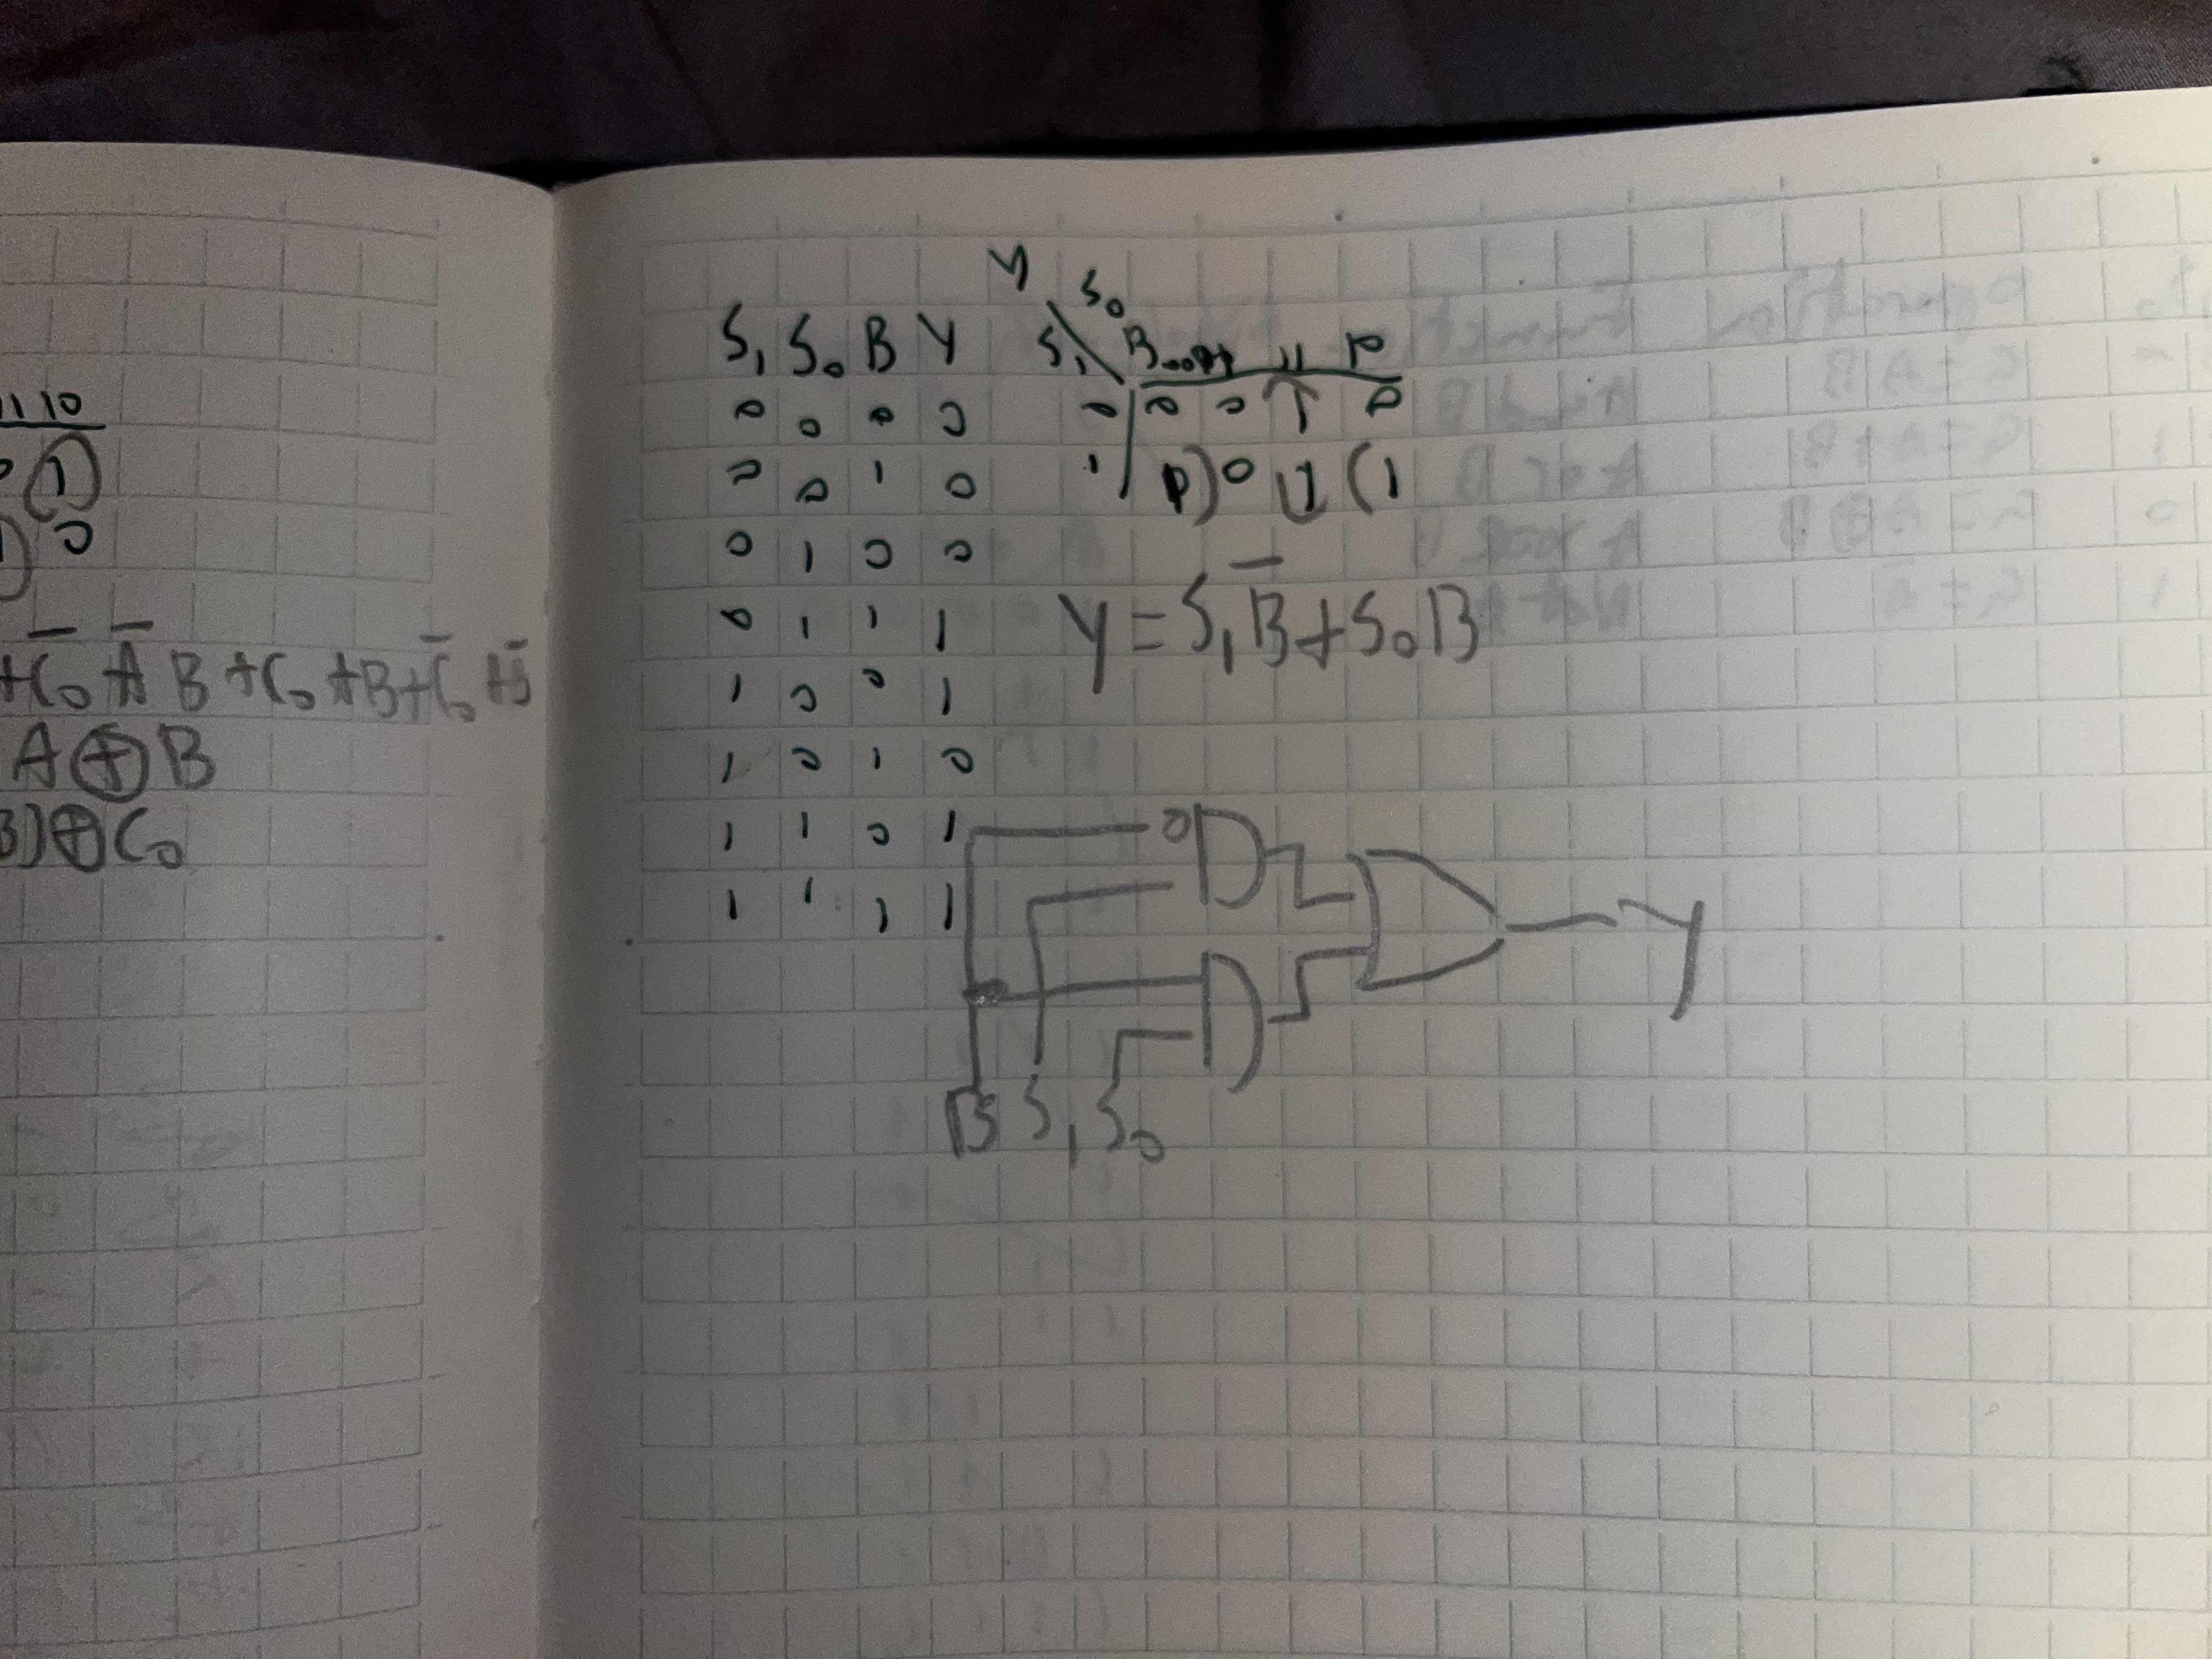 11 10
1
0
+C₀ A̅ B + C₀ AB + C̅₀ AB̅
A ⊕ B
B) ⊕ C₀
S₁ S₀ B Y
0 0 0 0
0 0 1 0
0 1 0 0
0 1 1 1
1 0 0 1
1 0 1 0
1 1 0 1
1 1 1 1
Y
S₀
S₁ B 00 01 11 10
0 0 0 1 0
1 1 0 1 1
Y = S₁B̅ + S₀B
Y
B S₁ S₀